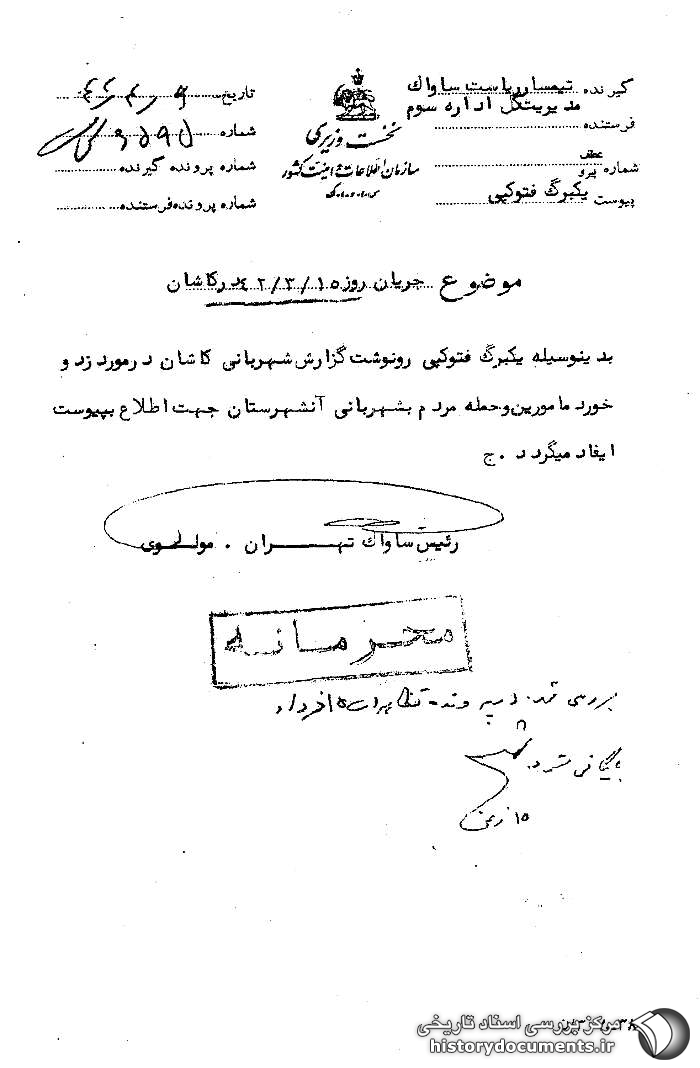 گیرنده تیمسار ریاست ساواك
مدیریتكل اداره سوم
فرستنده
عطف
شماره پیرو
پیوست یکبرگ فتوکپی
نخست وزیری
سازمان اطلاعات و امنیت کشور
س.ا.و.ا.ک
تاریخ
شماره
شماره پرونده گیرنده
شماره پرونده فرستنده
موضوع جریان روز ۴۲/۳/۱۵ در کاشان
بدینوسیله یکبرگ فتوکپی رونوشت گزارش شهربانی کاشان در مورد زد و
خورد مامورین و حمله مردم بشهربانی آنشهرستان جهت اطلاع بپیوست
ایفاد میگردد . ج
رئیس ساواك تهـــران . مولوی
محرمانه
بررسی شد. در پرونده تظاهرات ۱۵ خرداد
بایگانی شود.
مرکز بررسی اسناد تاریخی
historydocuments.ir